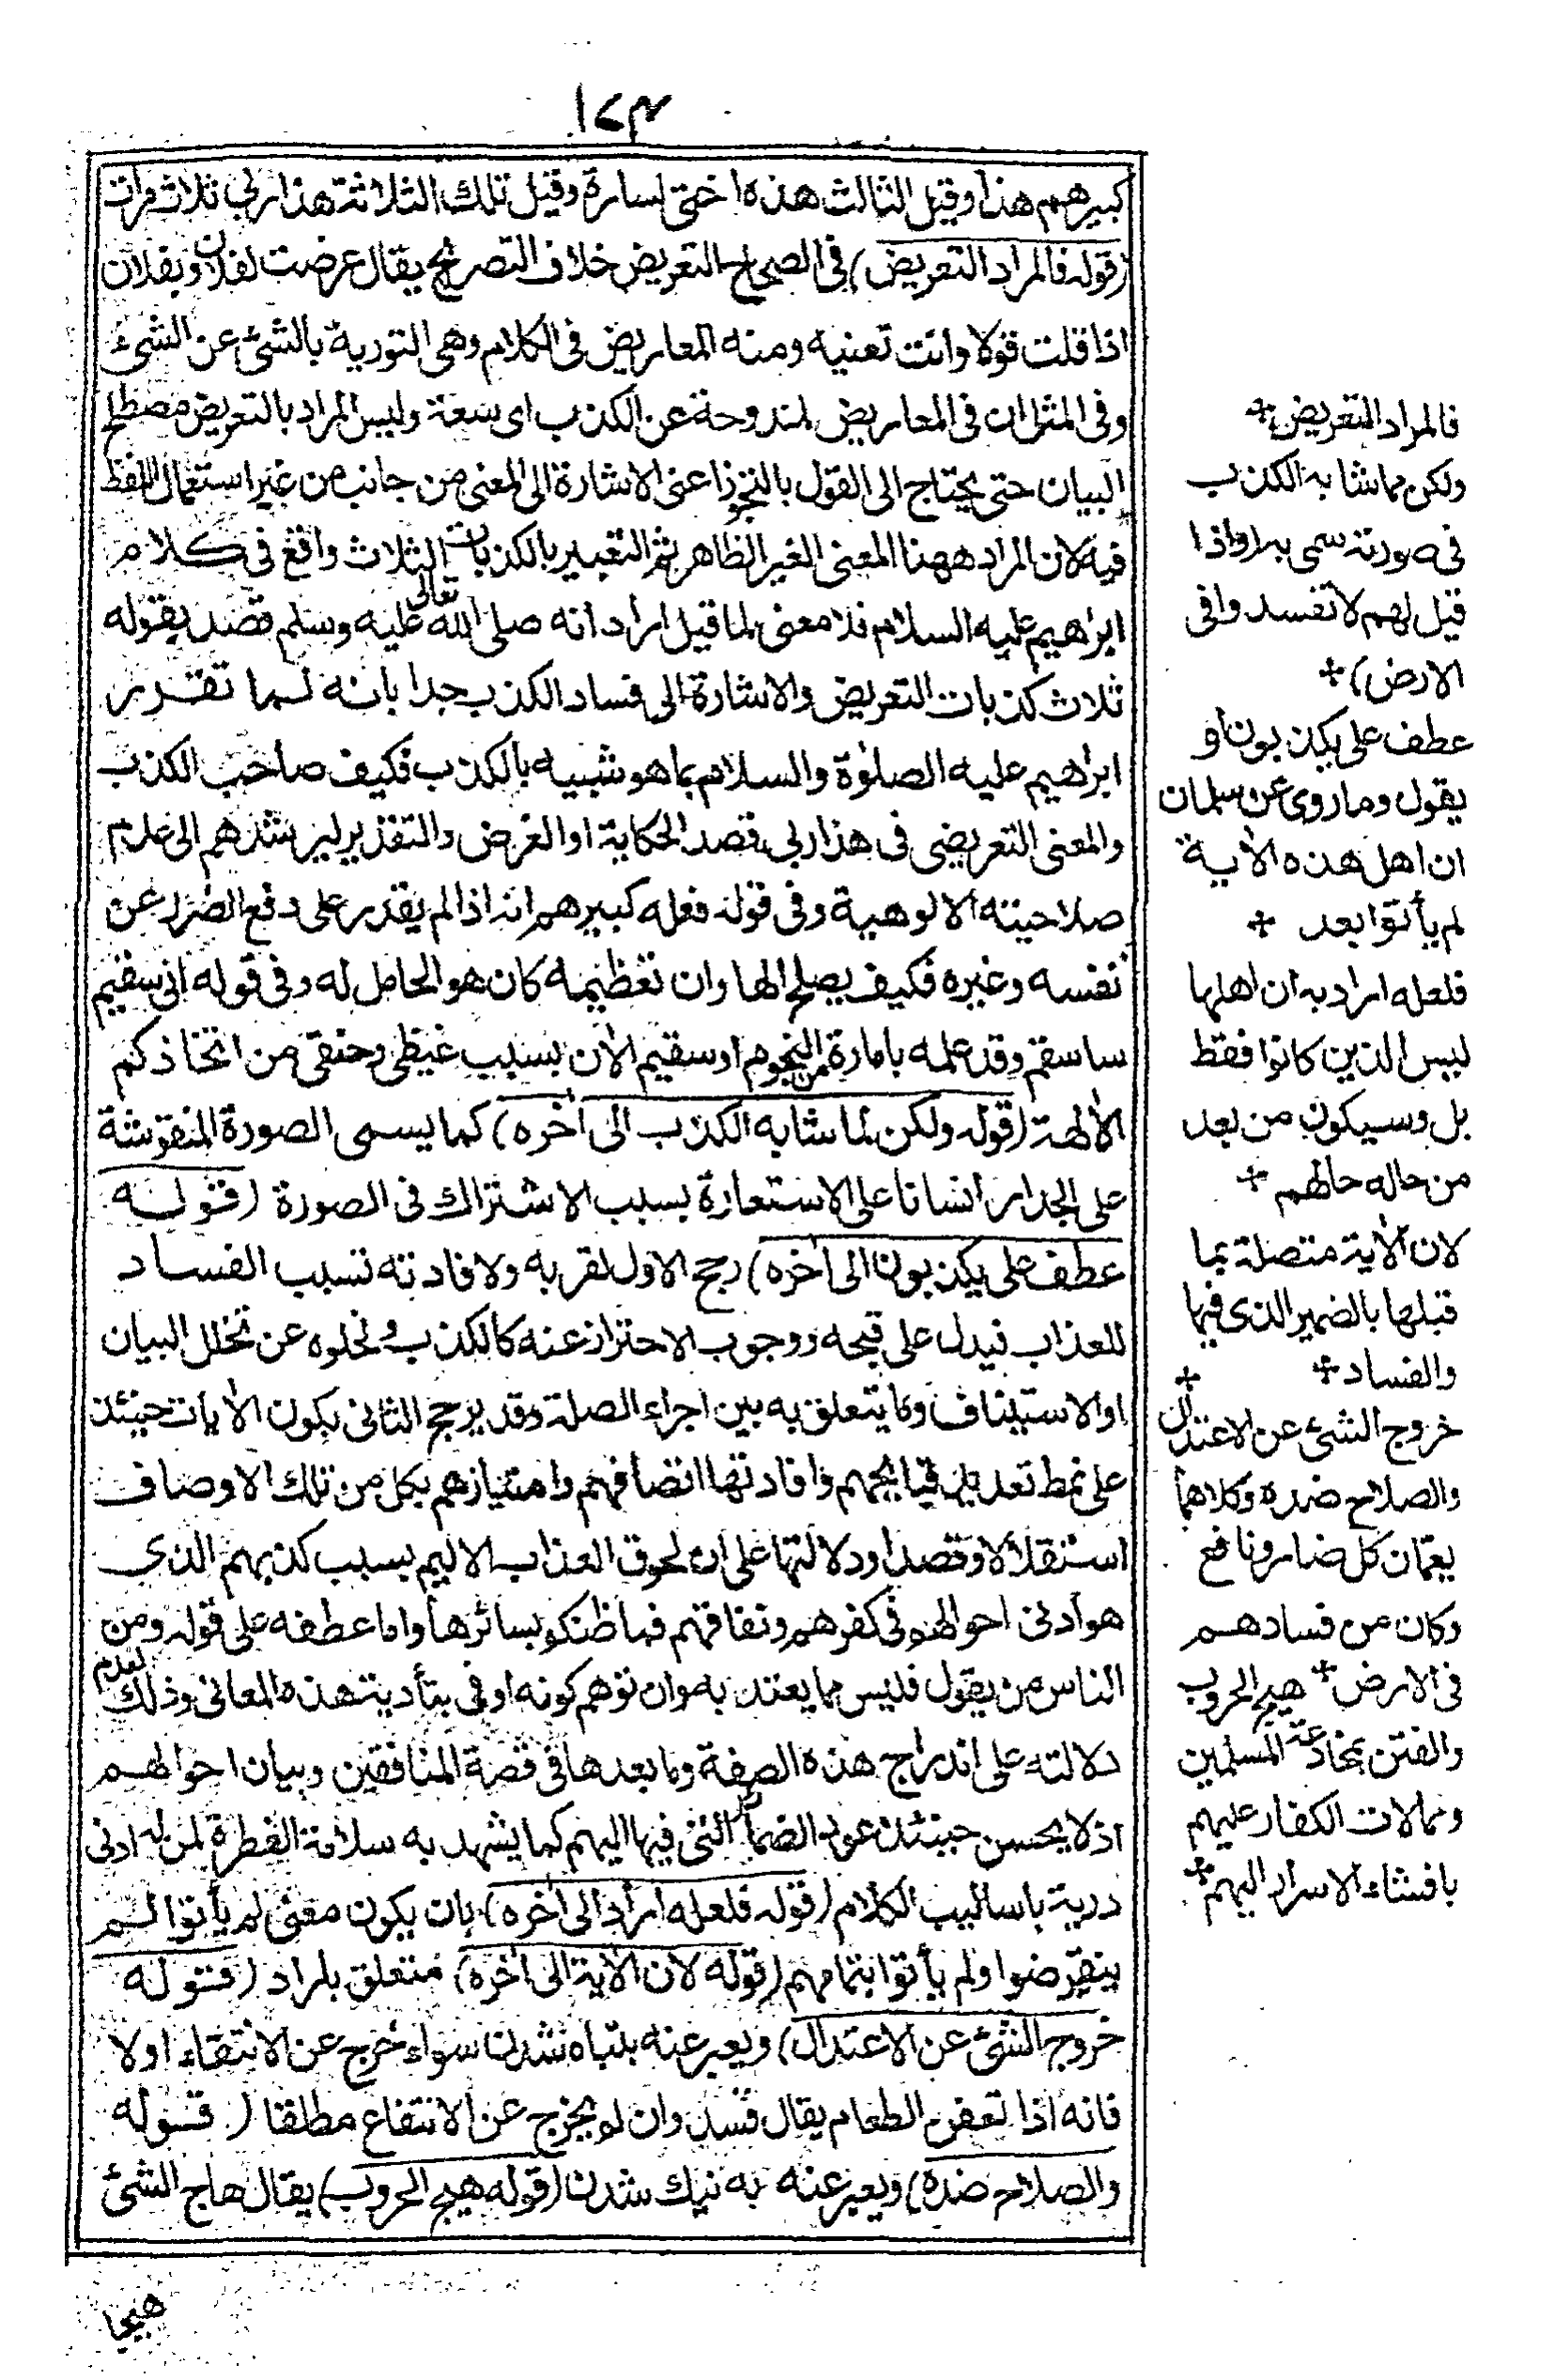 ١٧٣
كبيرهم هذا وقيل الثالث هذه اختى لسارة وقيل تلك الثلاثة هذا ربي ثلاث مرات
(قوله فالمراد التعريض) فى الصحاح التعريض خلاف التصريح يقال عرضت لفلان وبفلان
اذا قلت قولا وانت تعنيه ومنه المعاريض فى الكلام وهى التورية بالشئ عن الشئ
وفى المثل ان فى المعاريض لمندوحة عن الكذب اى سعة وليس المراد بالتعريض مصطلح
البيان حتى يحتاج الى القول بالتجوز اعنى الاشارة الى المعنى من جانب من غير استعمال اللفظ
فيه لان المراد ههنا المعنى الغير الظاهر ثم التعبير بالكذبات الثلاث واقع فى كلام
ابراهيم عليه السلام فلا معنى لما قيل اراد انه صلى الله تعالى عليه وسلم قصد بقوله
ثلاث كذبات التعريض والاشارة الى فساد الكذب جدا بانه لما تقرر
ابراهيم عليه الصلوة والسلام بما هو شبيه بالكذب فكيف صاحب الكذب
والمعنى التعريضى فى هذا ربى قصد الحكاية او الفرض والتقدير ليرشدهم الى عدم
صلاحيته الالوهية وفى قوله فعله كبيرهم انه اذا لم يقدر على دفع الضرر عن
نفسه وغيره فكيف يصلح الها وان تعظيمه كان هو الحامل له وفى قوله انى سقيم
ساسقم وقد علمه بامارة من النجوم او سقيم الآن بسبب غيظى وحنقى من اتخاذكم
الآلهة (قوله ولكن لما شابه الكذب الى آخره) كما يسمى الصورة المنقوشة
على الجدار انسانا على الاستعارة بسبب الاشتراك فى الصورة (قوله
عطف على يكذبون الى آخره) رجح الاول لقربه ولافادته تسبب الفساد
للعذاب فيدل على قبحه ووجوب الاحتراز عنه كالكذب ولخلوه عن تخلل البيان
او الاستيناف وما يتعلق به بين اجزاء الصلة وقد يرجح الثانى بكون الآيات حينئذ
على نمط تعديد قبايحهم وافادتها اتصافهم وامتيازهم بكل من تلك الاوصاف
استقلالا وقصدا ودلالتها على ان لحوق العذاب الاليم بسبب كذبهم الذى
هو ادنى احوالهم فى كفرهم ونفاقهم فما ظنكم بسائرها واما عطفه على قوله ومن
الناس من يقول فليس مما يعتد به وان توهم كونه اوفى بتأدية هذه المعانى وذلك لعدم
دلالته على اندراج هذه الصفة وما بعدها فى قصة المنافقين وبيان احوالهم
اذ لا يحسن حينئذ عود الضمائر التى فيها اليهم كما يشهد به سلامة الفطرة لمن له ادنى
درية باساليب الكلام (قوله فلعله اراد الى آخره) بان يكون معنى لم يأتوا لم
ينقرضوا ولم يأتوا بتمامهم (قوله لان الآية الى آخره) متعلق بلراد (قوله
خروج الشئ عن الاعتدال) ويعبر عنه بتباه شدن سواء خرج عن الانتفاء اولا
فانه اذا تعفن الطعام يقال فسد وان لم يخرج عن الانتفاع مطلقا (قوله
والصلاح ضده) ويعبر عنه به نيك شدن (قوله هيج الحروب) يقال هاج الشئ
هيجا
فالمراد التعريض +
ولكن مما شابه الكذب
فى صورته سمى به (واذا
قيل لهم لا تفسدوا فى
الارض) +
عطف على يكذبون او
يقول وما روى عن سلمان
ان اهل هذه الآية
لم يأتوا بعد +
فلعله اراد به ان اهلها
ليس الذين كانوا فقط
بل وسيكون من بعد
من حاله حالهم +
لان الآية متصلة بما
قبلها بالضمير الذى فيها
والفساد +
خروج الشئ عن الاعتدال +
والصلاح ضده وكلاهما
يعمان كل ضار ونافع
وكان من فسادهم
فى الارض + هيج الحروب
والفتن بمخادعة المسلمين
وممالات الكفار عليهم
بافشاء الاسرار اليهم +